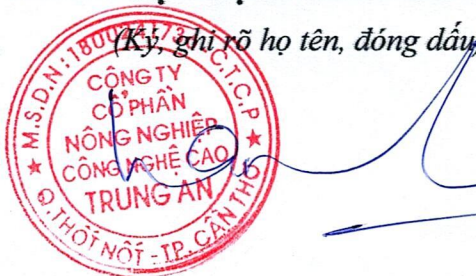 (Ký, ghi rõ họ tên, đóng dấu
C.T.C.P
CÔNG TY
CỔ PHẦN
NÔNG NGHIỆP
CÔNG NGHỆ CAO
TRUNG AN
Q.THỐT NỐT - TP. CẦN THƠ